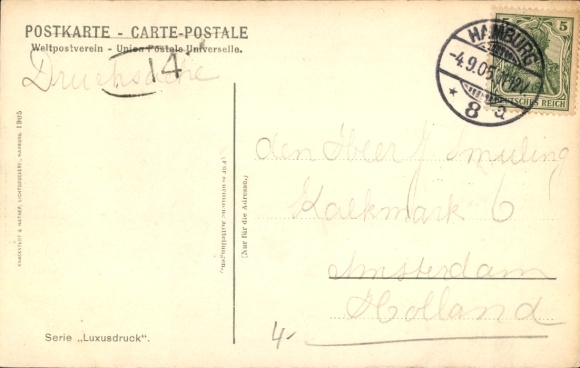 POSTKARTE - CARTE-POSTALE
Weltpostverein - Union Postale Universelle.
Drucksache
14
HAMBURG
-4.9.05.
* 8 a
5
DEUTSCHES REICH
KNACKSTEDT & NÄTHER, LICHTDRUCKEREI, HAMBURG. 1905
(Für schriftliche Mitteilungen.)
(Nur für die Adresse.)
den Heer J Smuling
Kalkmark 6
Amsterdam
Holland
Serie „Luxusdruck".
4-